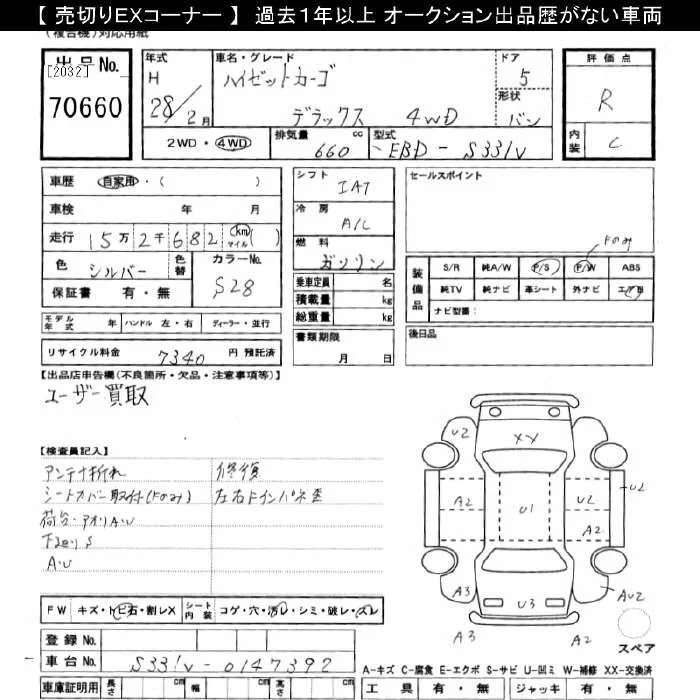 【 売切りEXコーナー 】 過去1年以上 オークション出品歴がない車両
(複合機)対応用紙
出品No.
[2032]
70660
年式
H
28/2月
車名・グレード
ハイゼットカーゴ
デラックス 4WD
ドア
5
形状
バン
評価点
R
内装
C
2WD・4WD
排気量 cc
660
型式
EBD-S331V
車歴 自家用・( )
車検 年 月
走行 15万2千682 km マイル ( )
色 シルバー
色替
カラーNo.
S28
保証書 有・無
シフト
IAT
冷房
A/C
燃料
ガソリン
乗車定員 名
積載量 kg
総重量 kg
書類期限
月 日
セールスポイント
Fのみ
装備品
S/R 純A/W P/S P/W ABS
純TV 純ナビ 革シート 外ナビ エアB
ナビ型番:
後日品
モデル年式 年 ハンドル 左・右 ディーラー・並行
リサイクル料金 7340 円 預託済
【出品店申告欄(不良箇所・欠品・注意事項等)】
ユーザー買取
【検査員記入】
アンテナ折れ 修復
シートカバー取付(Fのみ) 左右Fインパネ歪
荷台・アオリA・U
下廻りS
A・U
U2 XX U2
A2 U1 U2 U2
A2
A3 U3 AU2
A3 A2
スペア
FW キズ・トビ石・割レX
シート内装 コゲ・穴・汚レ・シミ・破レ・スレ
登録No.
車台No. S331V-0147392
車庫証明用 長さ cm 幅 cm 高さ cm
A-キズ C-腐食 E-エクボ S-サビ U-凹ミ W-補修 XX-交換済
工具 有・無 ジャッキ 有・無